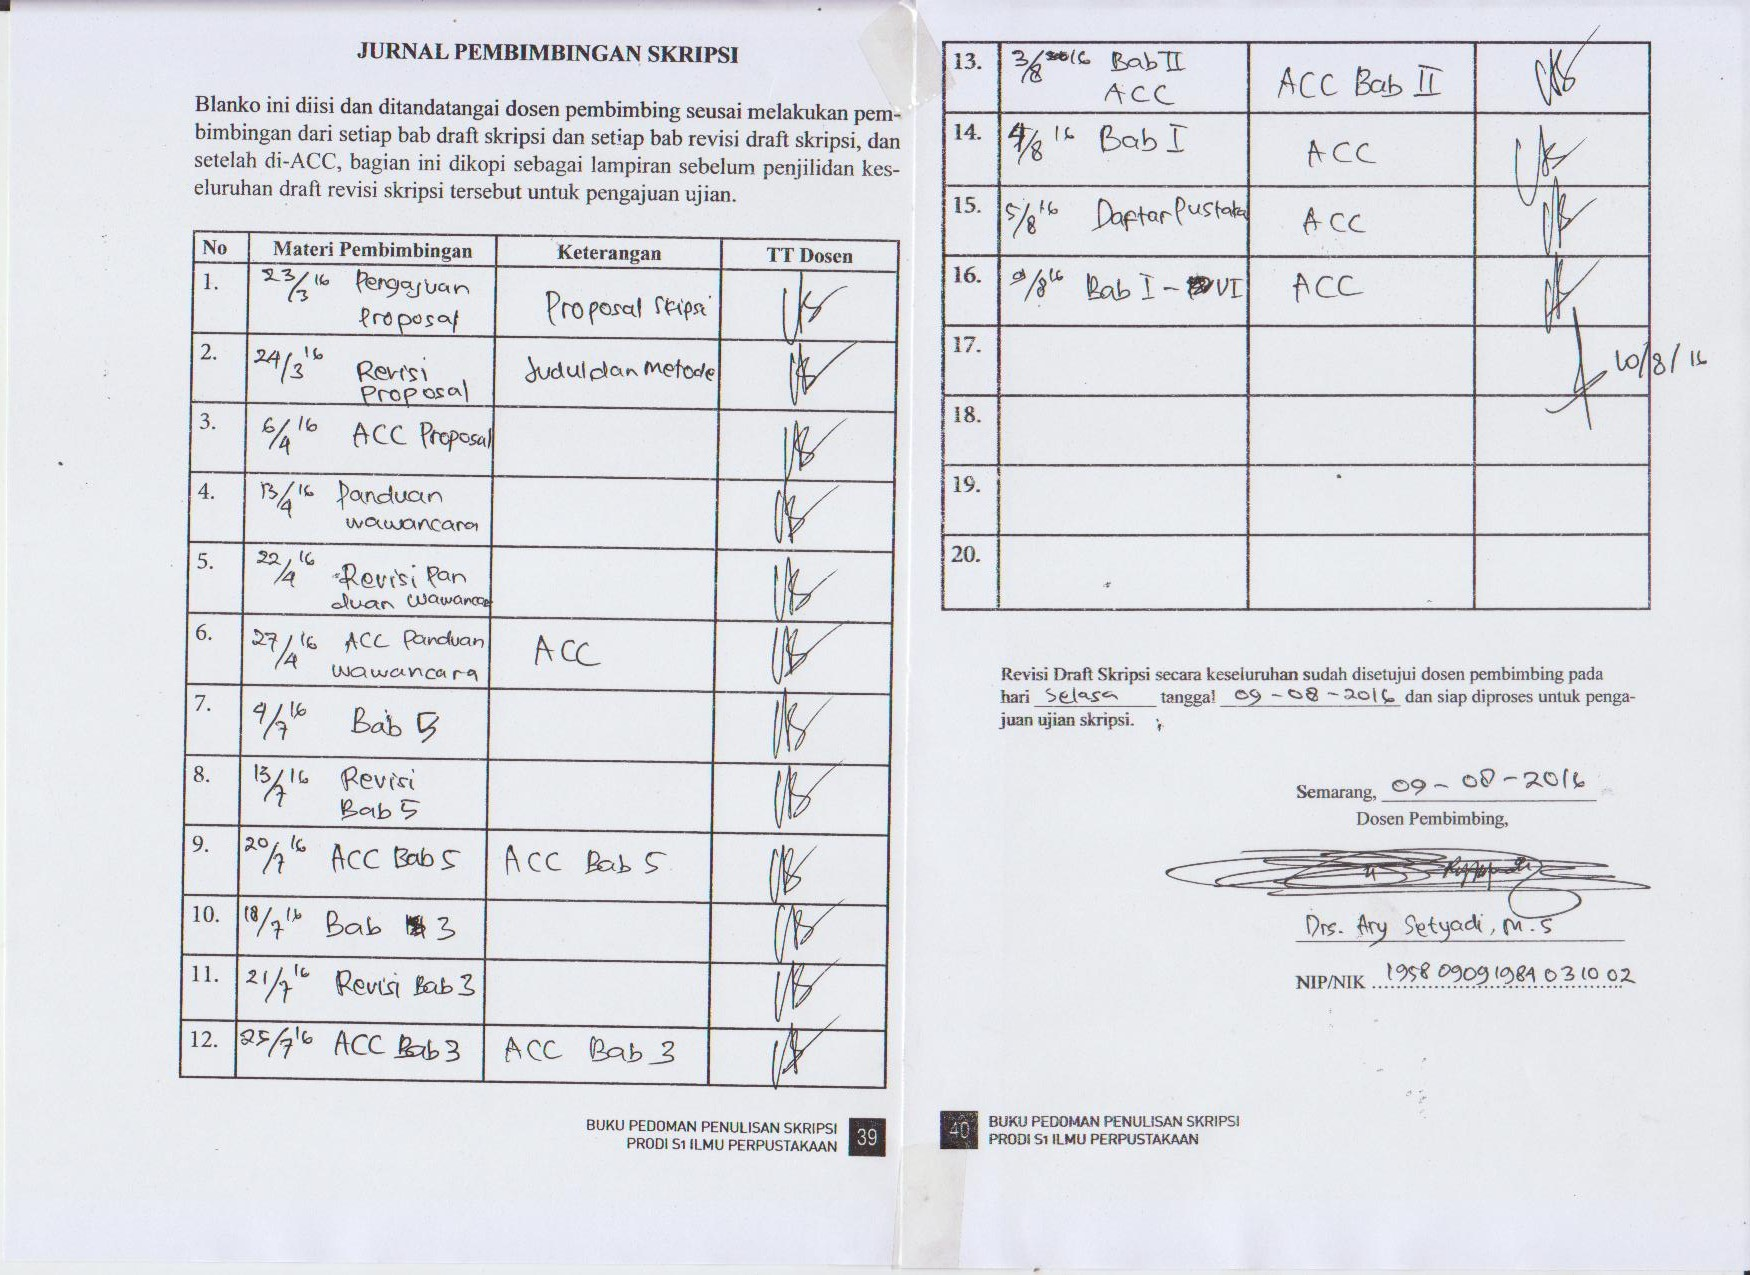 JURNAL PEMBIMBINGAN SKRIPSI
Blanko ini diisi dan ditandatangai dosen pembimbing seusai melakukan pem-
bimbingan dari setiap bab draft skripsi dan setiap bab revisi draft skripsi, dan
setelah di-ACC, bagian ini dikopi sebagai lampiran sebelum penjilidan kes-
eluruhan draft revisi skripsi tersebut untuk pengajuan ujian.
No Materi Pembimbingan Keterangan TT Dosen
1. 23/3 16 Pengajuan Proposal Skipsi
Proposal
2. 24/3 16 Revisi Judul dan Metode
Proposal
3. 6/4 16 ACC Proposal
4. 13/4 16 Panduan
wawancara
5. 22/4 16 Revisi Pan
duan wawancara
6. 27/4 16 ACC Panduan ACC
wawancara
7. 4/7 16 Bab 5
8. 13/7 16 Revisi
Bab 5
9. 20/7 16 ACC Bab 5 ACC Bab 5
10. 18/7 16 Bab 3
11. 21/7 16 Revisi Bab 3
12. 25/7 16 ACC Bab 3 ACC Bab 3
BUKU PEDOMAN PENULISAN SKRIPSI
PRODI S1 ILMU PERPUSTAKAAN
39
13. 3/8 2016 Bab II ACC Bab II
ACC
14. 4/8 16 Bab I ACC
15. 5/8 16 Daftar Pustaka ACC
16. 9/8 16 Bab I - VI ACC
17. 10/8/16
18.
19.
20.
Revisi Draft Skripsi secara keseluruhan sudah disetujui dosen pembimbing pada
hari Selasa tanggal 09 - 08 - 2016 dan siap diproses untuk penga-
juan ujian skripsi.
Semarang, 09 - 08 - 2016
Dosen Pembimbing,
Drs. Ary Setyadi, M.S
NIP/NIK 1958 0909 1984 031002
40
BUKU PEDOMAN PENULISAN SKRIPSI
PRODI S1 ILMU PERPUSTAKAAN